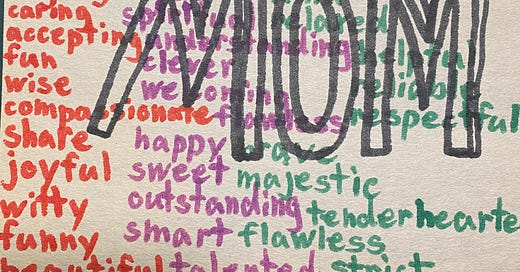 MOM
caring
accepting understanding
fun clever helpful
wise welcoming reliable
compassionate flawless respectful
share happy brave
joyful sweet majestic
witty outstanding tenderhearte
funny smart flawless
beautiful talented strict